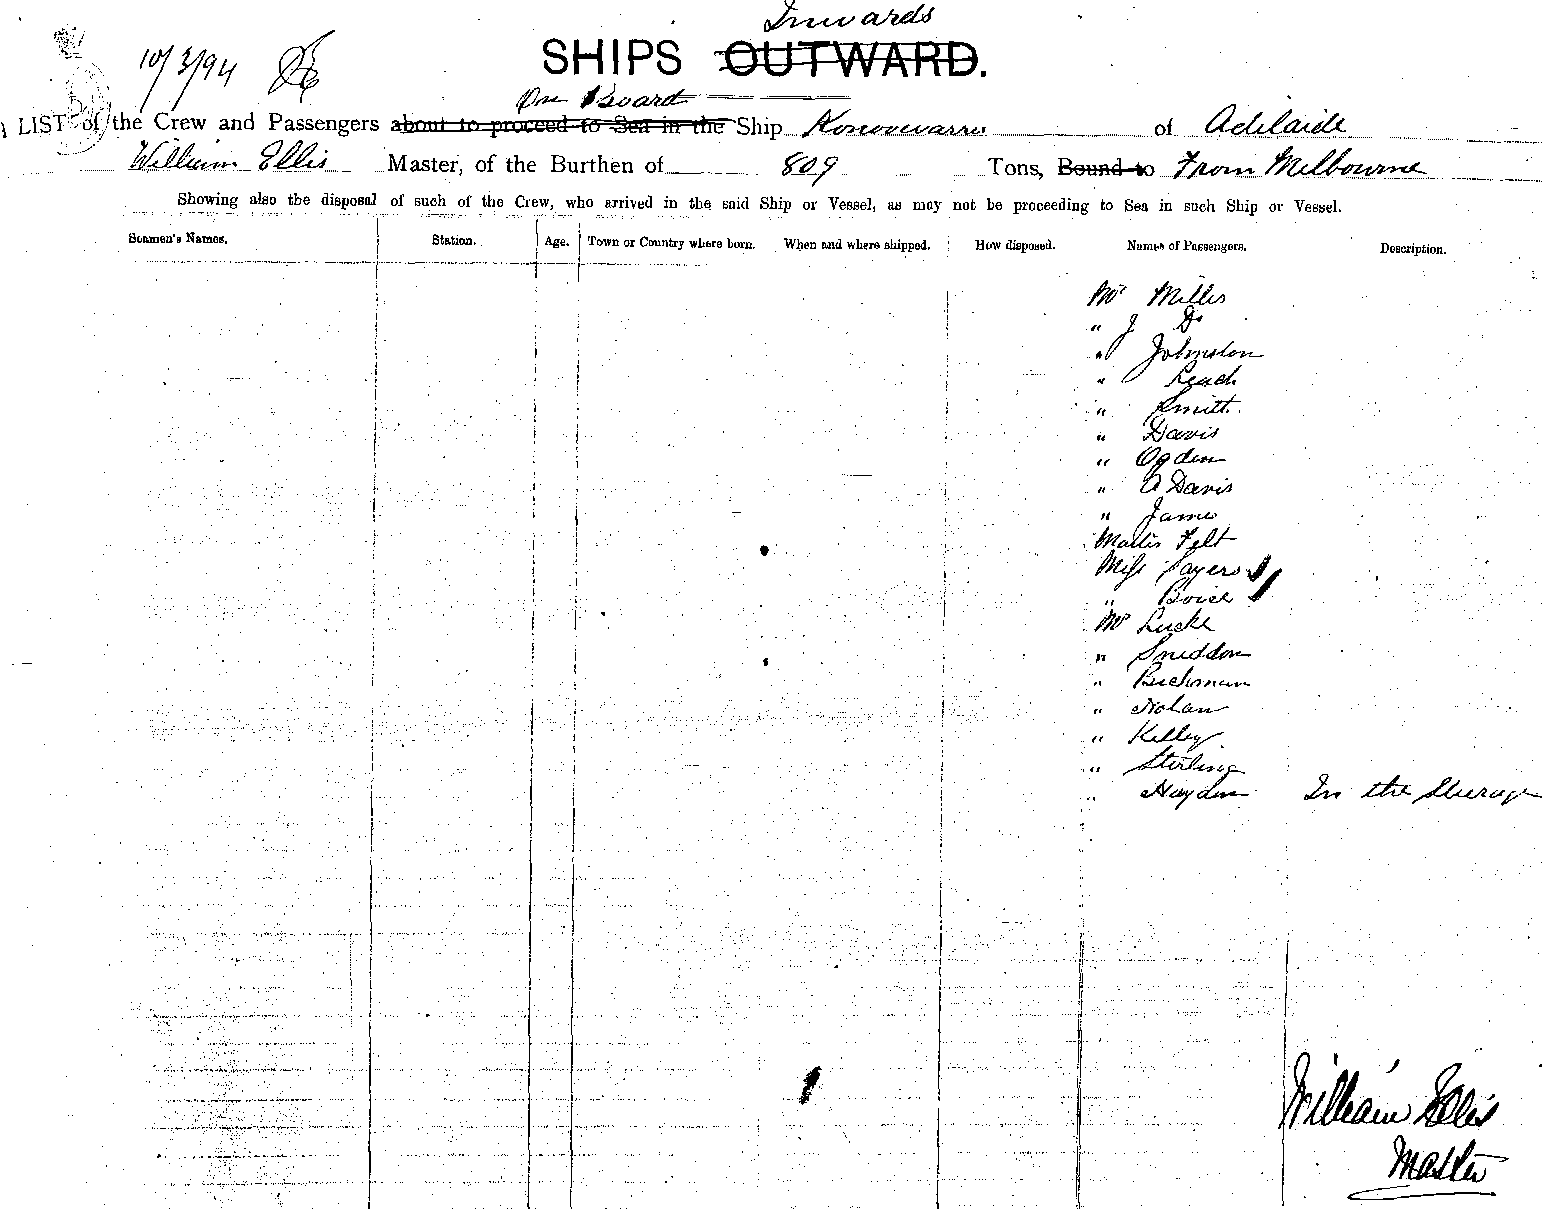 Inwards
10/3/94
SHIPS OUTWARD.
On Board
LIST of the Crew and Passengers about to proceed to Sea in the Ship Konoowarra of Adelaide
William Ellis Master, of the Burthen of 809 Tons, Bound to From Melbourne
Showing also the disposal of such of the Crew, who arrived in the said Ship or Vessel, as may not be proceeding to Sea in such Ship or Vessel.
Seamen's Names. Station. Age. Town or Country where born. When and where shipped. How disposed. Names of Passengers. Description.
Mr Millis
" J Do
" Johnston
" Leach
" Smith
" Davis
" Ogden
" A Davis
" James
Master Felt
Miss Sayers
" Boice
Mr Lucke
" Sneddon
" Buchman
" Nolan
" Kelley
" Sterling
" Hayden In the Steerage
William Ellis
Master